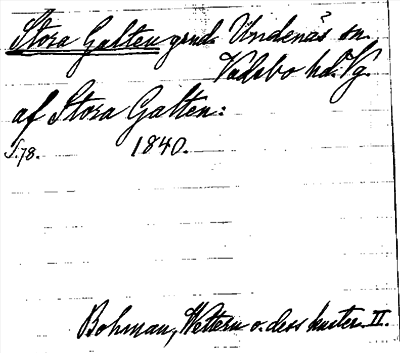 Stora Galten grund. Undenäs sn.
Vadsbo hd. Vg.
af Stora Galten:
S.78. 1840.
Bohman, Wettern o. dess kuster. II.